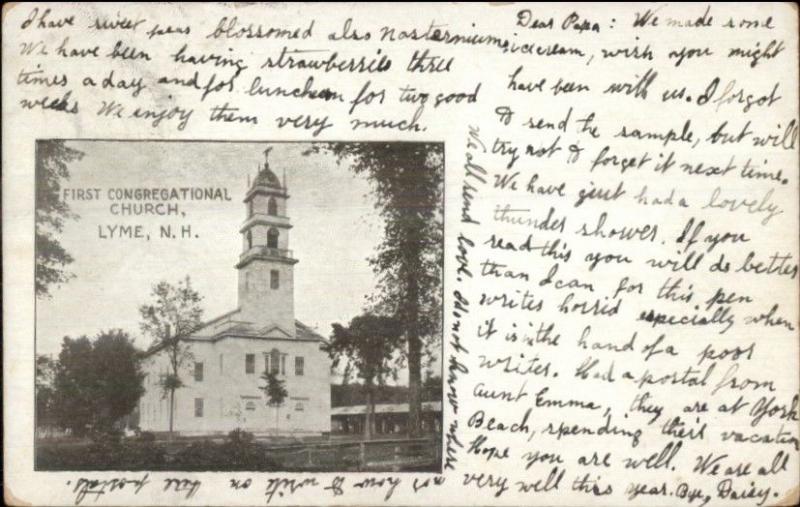 Dear Papa: We made some
icecream, wish you might
have been with us. I forgot
to send the sample, but will
try not to forget it next time.
We have just had a lovely
thunder shower. If you
read this you will do better
than I can for this pen
writes horrid especially when
it is in the hand of a poor
writer. Had a postal from
Aunt Emma, they are at York
Beach, spending their vacation
Hope you are well. We are all
very well this year. Bye, Daisy.
I have sweet peas blossomed also nasterniums
We have been having strawberries three
times a day and for luncheon for two good
weeks We enjoy them very much.
We all send love. Do not know where
nor how to write on here postals.
FIRST CONGREGATIONAL
CHURCH,
LYME, N.H.